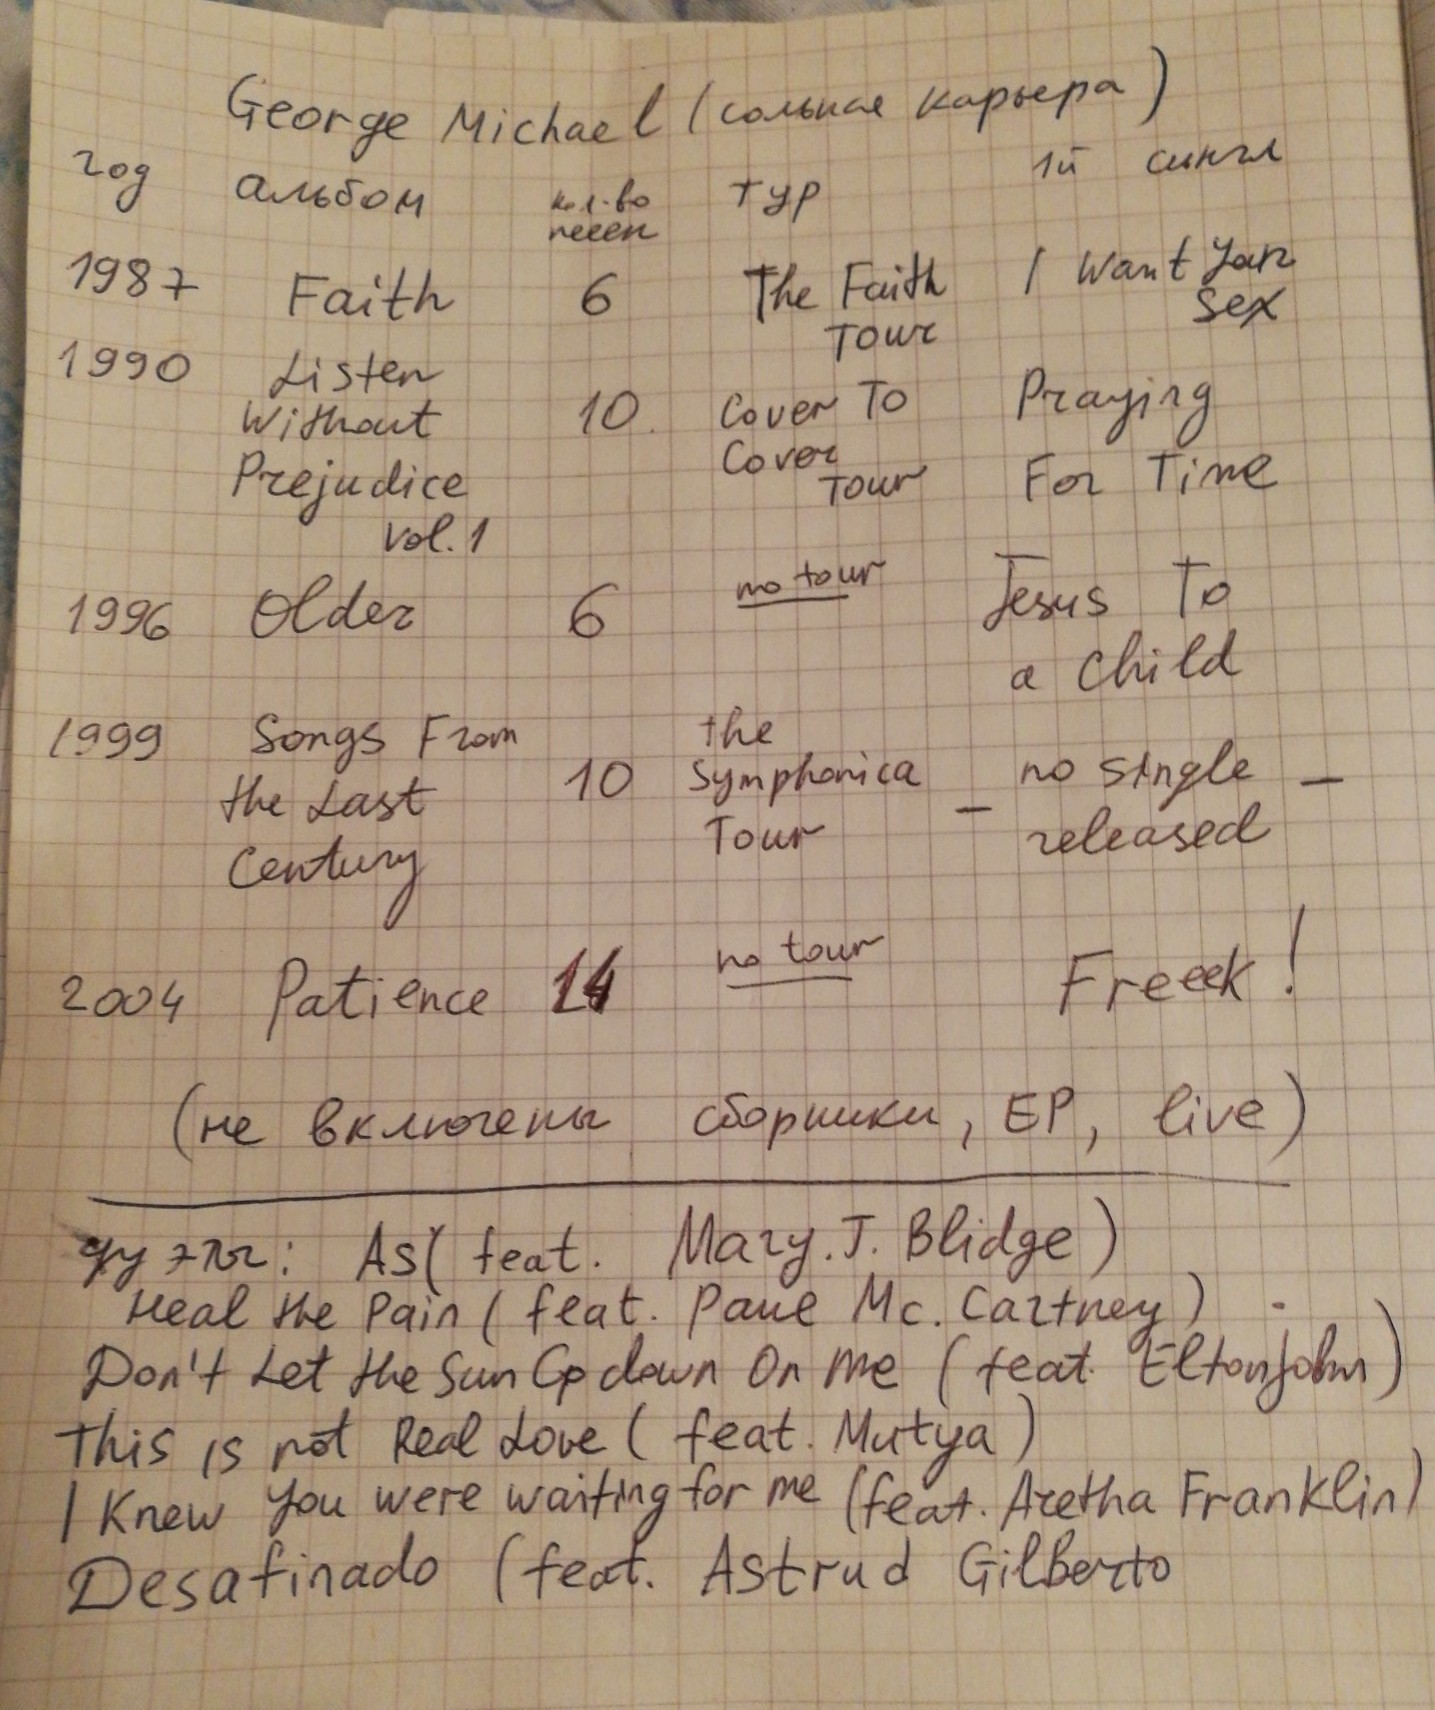 George Michael (сольная карьера)
год альбом кол-во песен тур 1й сингл
1987 Faith 6 The Faith Tour I Want Your Sex
1990 Listen Without Prejudice vol.1 10. Cover To Cover Tour Praying For Time
1996 Older 6 no tour Jesus To a Child
1999 Songs From the Last Century 10 the Symphonica Tour – no single released –
2004 Patience 14 no tour Freeek!
(не включены сборники, EP, live)
дуэты: As (feat. Mary. J. Blidge)
Heal the Pain (feat. Paul Mc. Cartney)
Don't Let the Sun Go down On Me (feat. Elton John)
This is not Real Love (feat. Mutya)
I Knew You were waiting for me (feat. Aretha Franklin)
Desafinado (feat. Astrud Gilberto